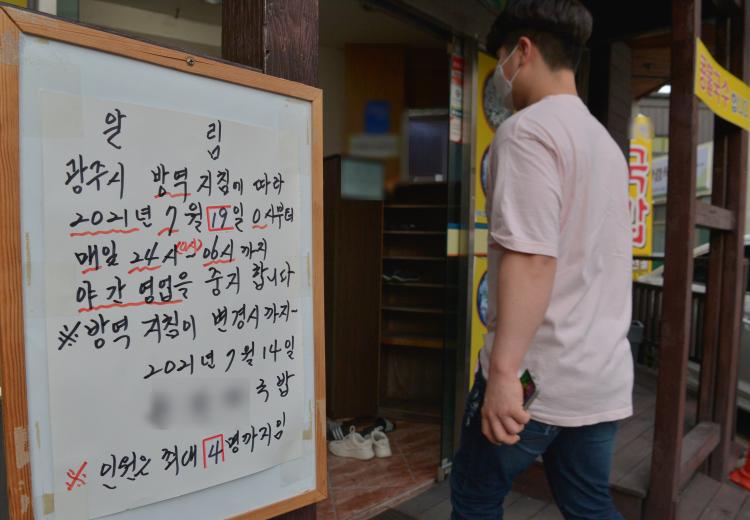 알 림
광주시 방역 지침에 따라
2021년 7월 19일 0시부터
매일 24시(0시)~06시까지
야간영업을 중지 합니다
※방역 지침이 변경시까지-
2021년 7월 14일
국밥
※ 인원은 최대 4명까지임
콩물국수
국밥